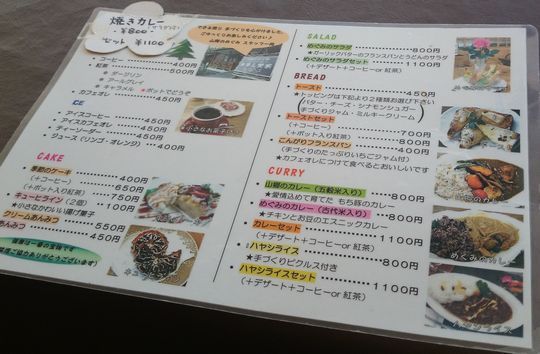 焼きカレー
¥800
セット ¥1100
できる限り 手づくりを心がけました
ごゆっくりお楽しみください♪
山郷のめぐみ スタッフ一同
コーヒー 400
紅茶 500
ダージリン
アールグレイ
キャラメル ★ポットでどうぞ
カフェオレ 450
ICE
アイスコーヒー 400
アイスカフェオレ 450
ティーソーダー 500
ジュース(リンゴ・オレンジ) 400
★小さなお菓子付
CAKE
季節のケーキ 400
(+コーヒー) 650
(+ポット入り紅茶) 750
チューヒライン(2個) 100
★小さなかわいい揚げ菓子
クリームあんみつ 550円
あんみつ 450
ありがとうございます
SALAD
めぐみのサラダ 800円
★ガーリックバターのフランスパンとうどんのサラダ
めぐみのサラダセット 1100円
(+デザート+コーヒーor 紅茶)
BREAD
トースト 450円
★トッピングは下記より2種類お選び下さい
(バター・チーズ・シナモンシュガー
手づくりジャム・ミルキークリーム)
トーストセット 700円
(+コーヒー)
(+ポット入り紅茶) 800円
こんがりフランスパン 400円
(手づくりのたっぷりいちごジャム付)
★カフェオレにつけて食べるとおいしいです
CURRY
山郷のカレー(五穀米入り) 800円
★愛情込めて育てた もち豚のカレー
めぐみのカレー(古代米入り) 800円
★チキンとお豆のエスニックカレー
カレーセット 1100円
(+デザート+コーヒーor 紅茶)
ハヤシライス 800円
★手づくりピクルス付き
ハヤシライスセット 1100円
(+デザート+コーヒーor 紅茶)
めぐみのカレー
ハヤシライス